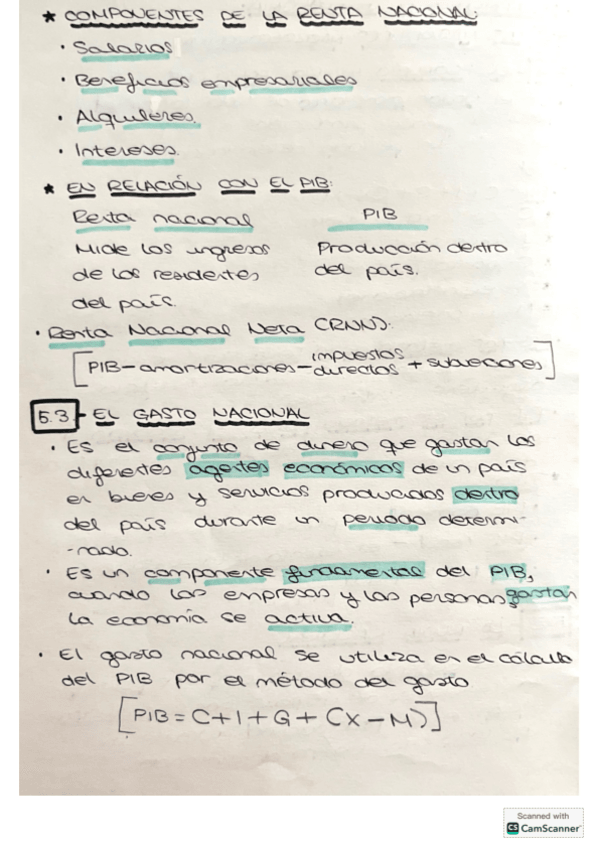 * COMPONENTES DE LA RENTA NACIONAL:
· Salarios
· Beneficios empresariales
· Alquileres.
· Intereses.
* EN RELACIÓN CON EL PIB:
Renta nacional
Mide los ingresos
de los residentes
del país.
PIB
Producción dentro
del país.
· Renta Nacional Neta (RNN):
[PIB - amortizaciones - impuestos directos + subvenciones]
5.3 - EL GASTO NACIONAL
· Es el conjunto de dinero que gastan los
diferentes agentes económicos de un país
en bienes y servicios producidos dentro
del país durante un periodo determi-
-nado.
· Es un componente fundamental del PIB,
cuando las empresas y las personas gastan
la economía se activa.
· El gasto nacional se utiliza en el cálculo
del PIB por el método del gasto
[PIB = C + I + G + (X - M)]
Scanned with
CS CamScanner